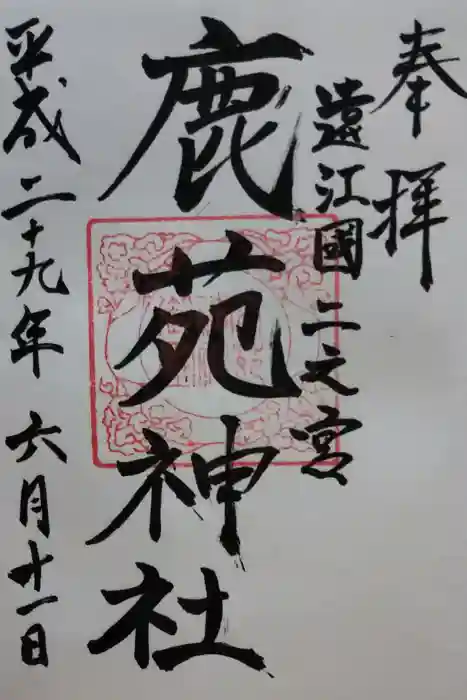 奉拝
遠江國二之宮
鹿苑神社
平成二十九年六月十一日